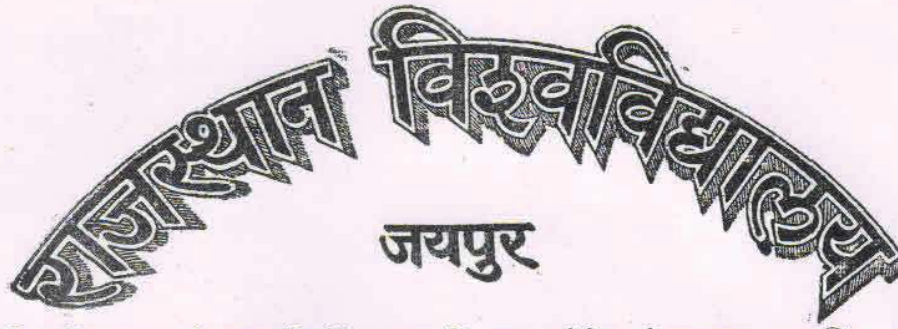 राजस्थान विश्वविद्यालय
जयपुर